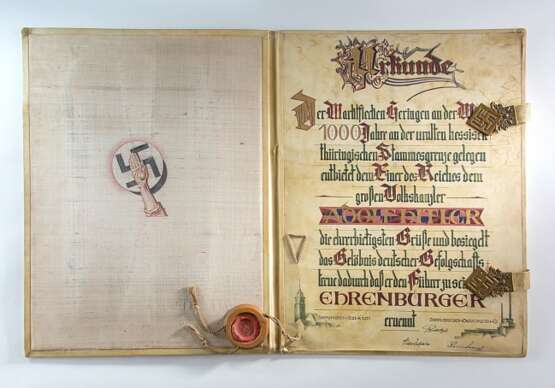 Urkunde
Der Marktflecken Heringen an der
1000 Jahre an der uralten hessisch
thüringischen Stammesgrenze gelegen
entbietet dem Einer des Reiches dem
großen Volkskanzler
ADOLF HITLER
die ehrerbietigsten Grüße und besiegelt
das Gelöbnis deutscher Gefolgschafts
treue dadurch daß er den Führer zu sei
EHRENBÜRGER
ernennt